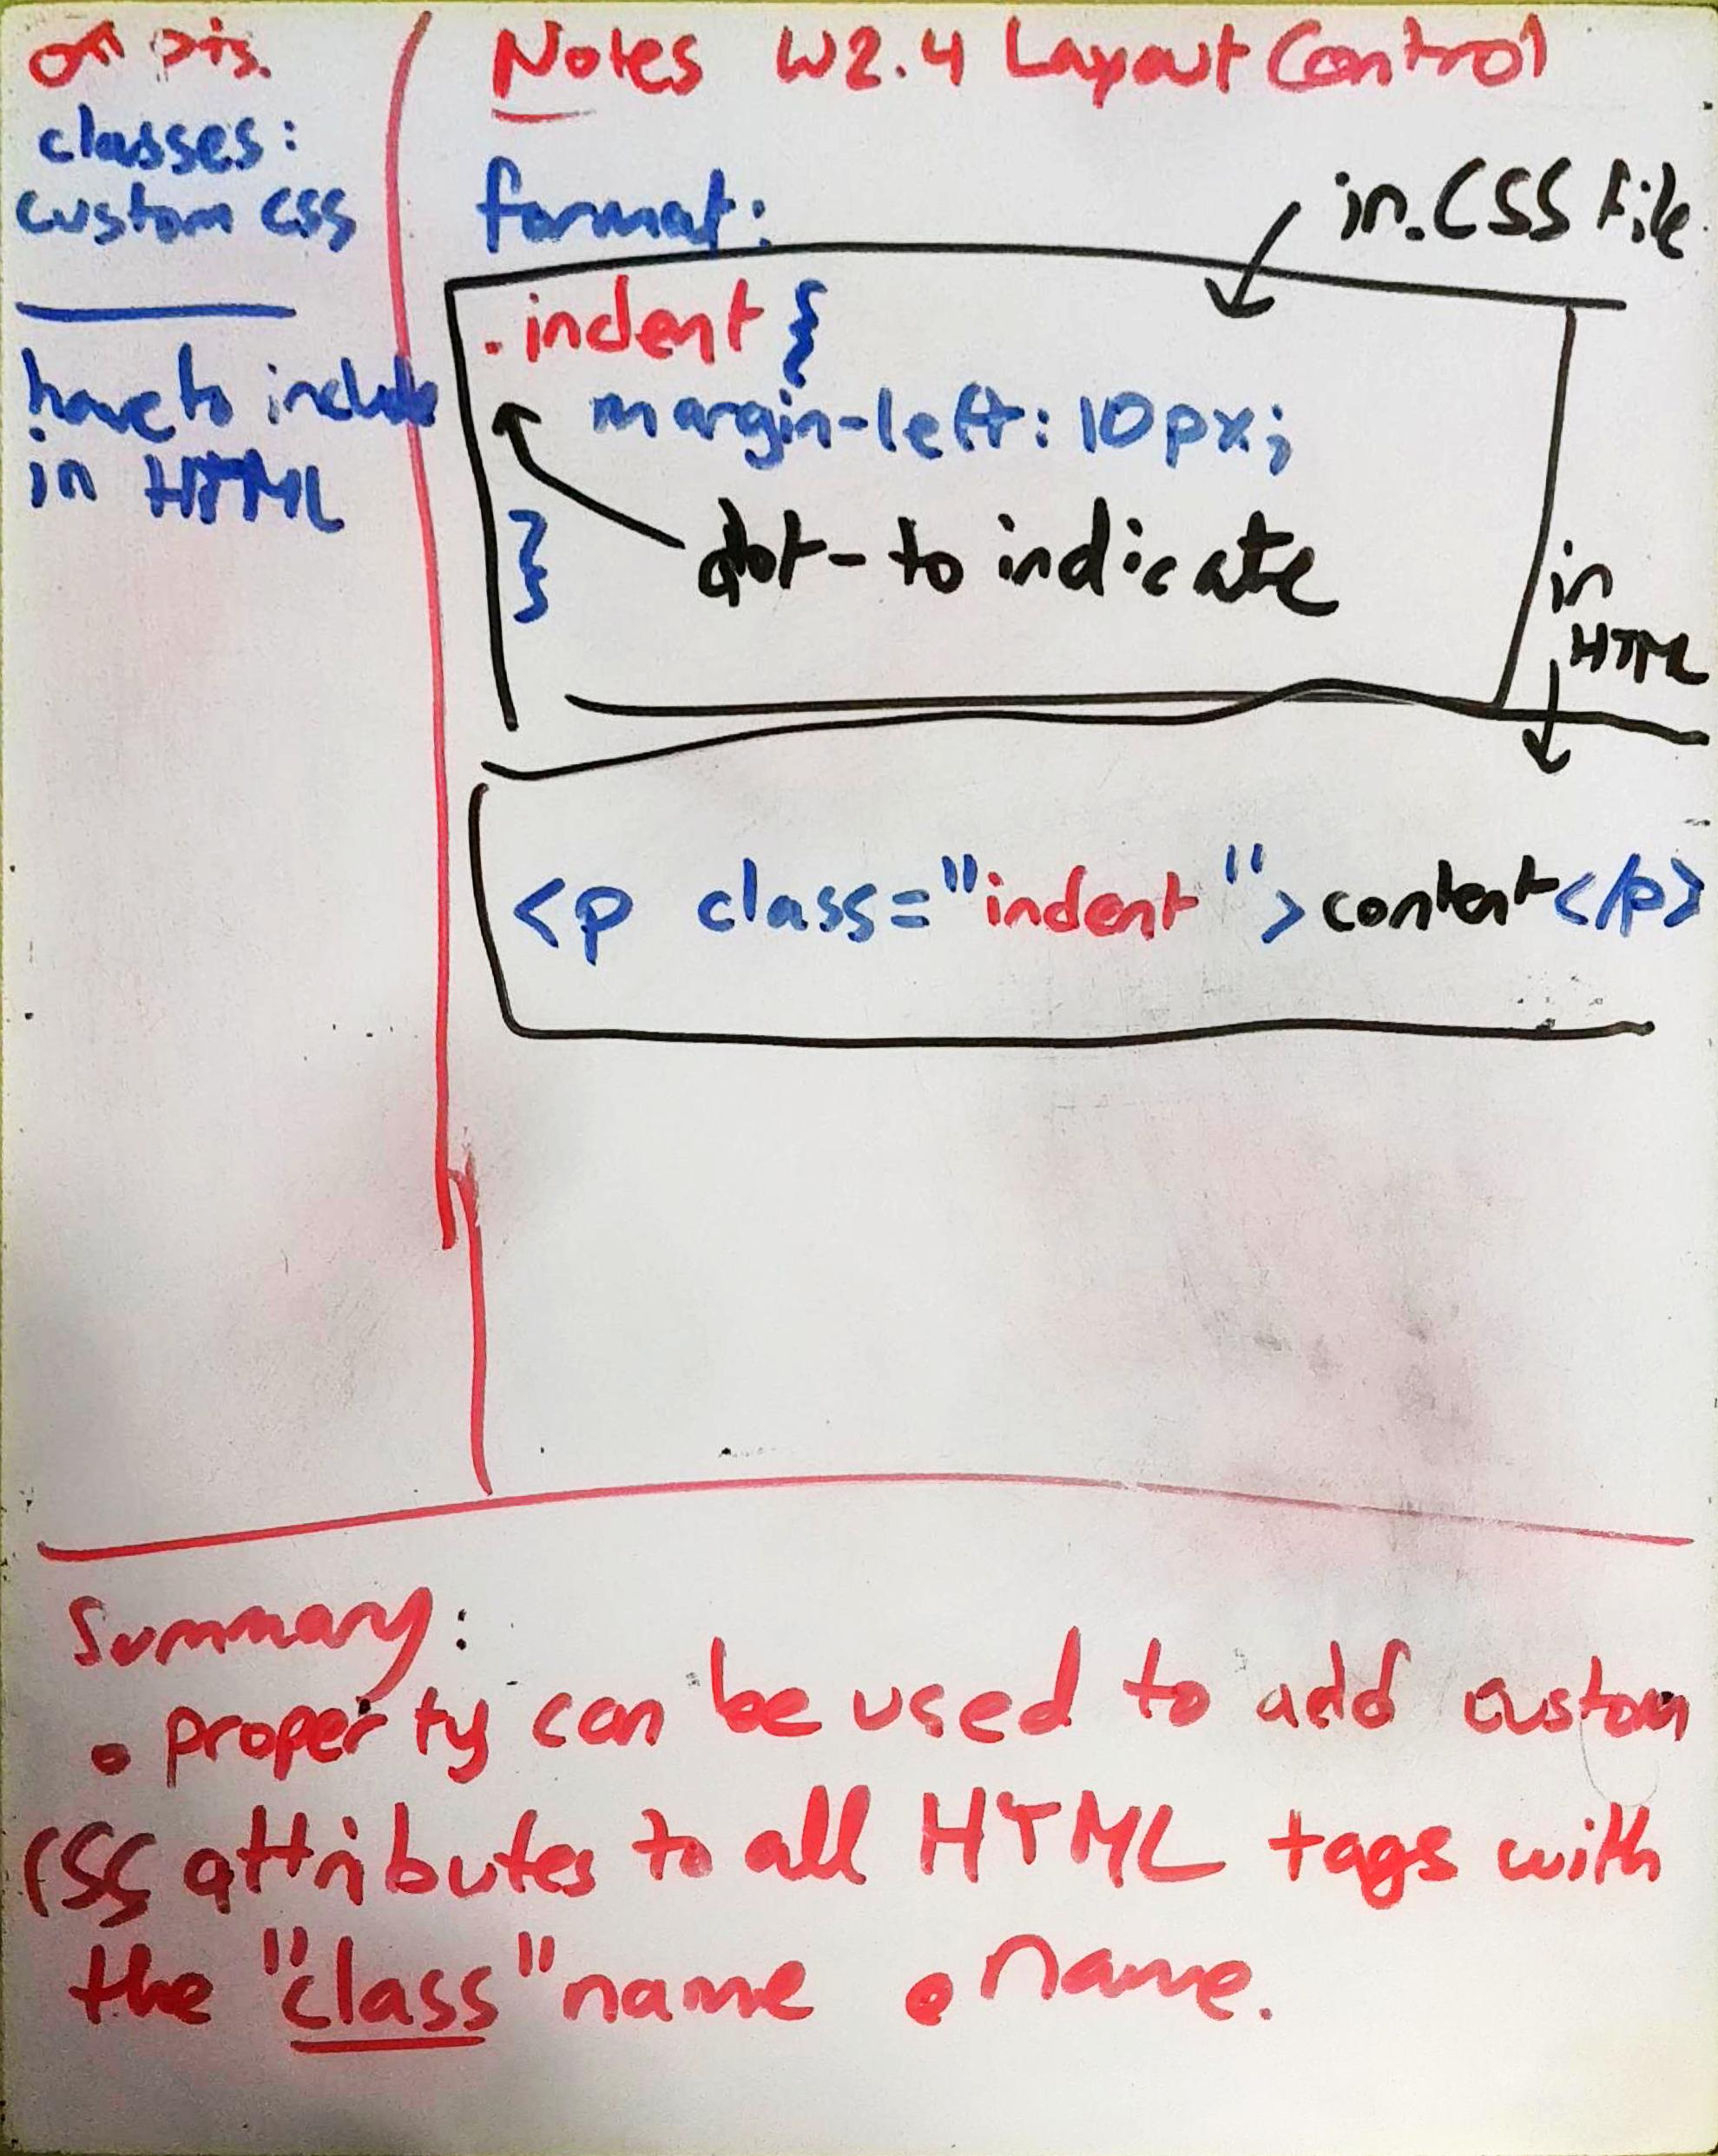 pts.
classes:
custom CSS
have to include
in HTML
Notes W2.4 Layout Control
format:
in .CSS file
.indent {
margin-left: 10px;
}
dot - to indicate
in
HTML
<p class="indent">content</p>
Summary:
• property can be used to add custom
CSS attributes to all HTML tags with
the "class" name .name.